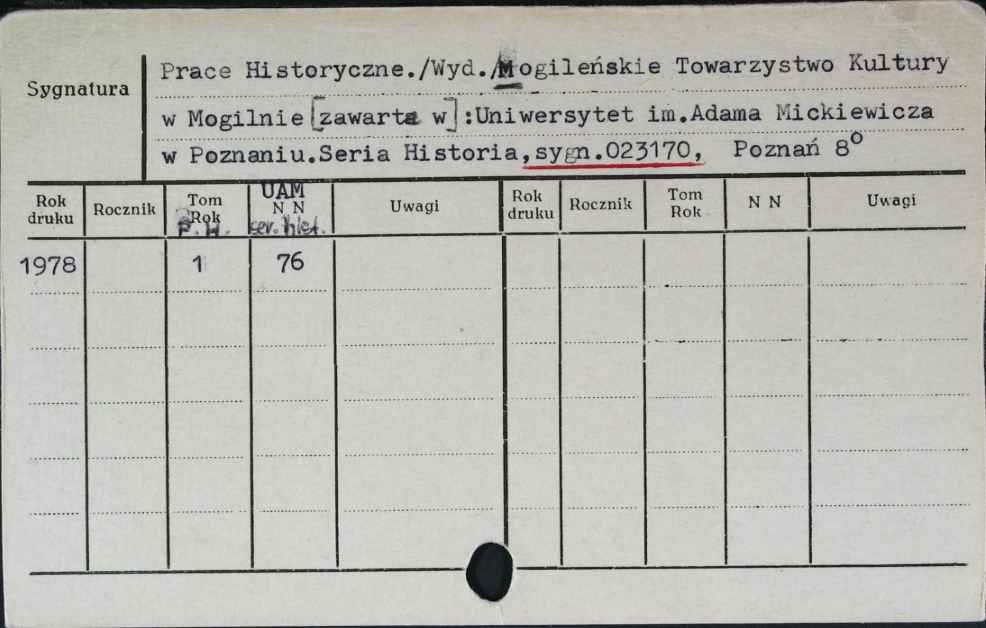 Sygnatura
Prace Historyczne./Wyd./Mogileńskie Towarzystwo Kultury
w Mogilnie [zawarta w]:Uniwersytet im.Adama Mickiewicza
w Poznaniu.Seria Historia,sygn.023170, Poznań 8º
Rok druku Rocznik Tom Rok P.H. UAM N N ser. hist. Uwagi Rok druku Rocznik Tom Rok N N Uwagi
1978 1 76